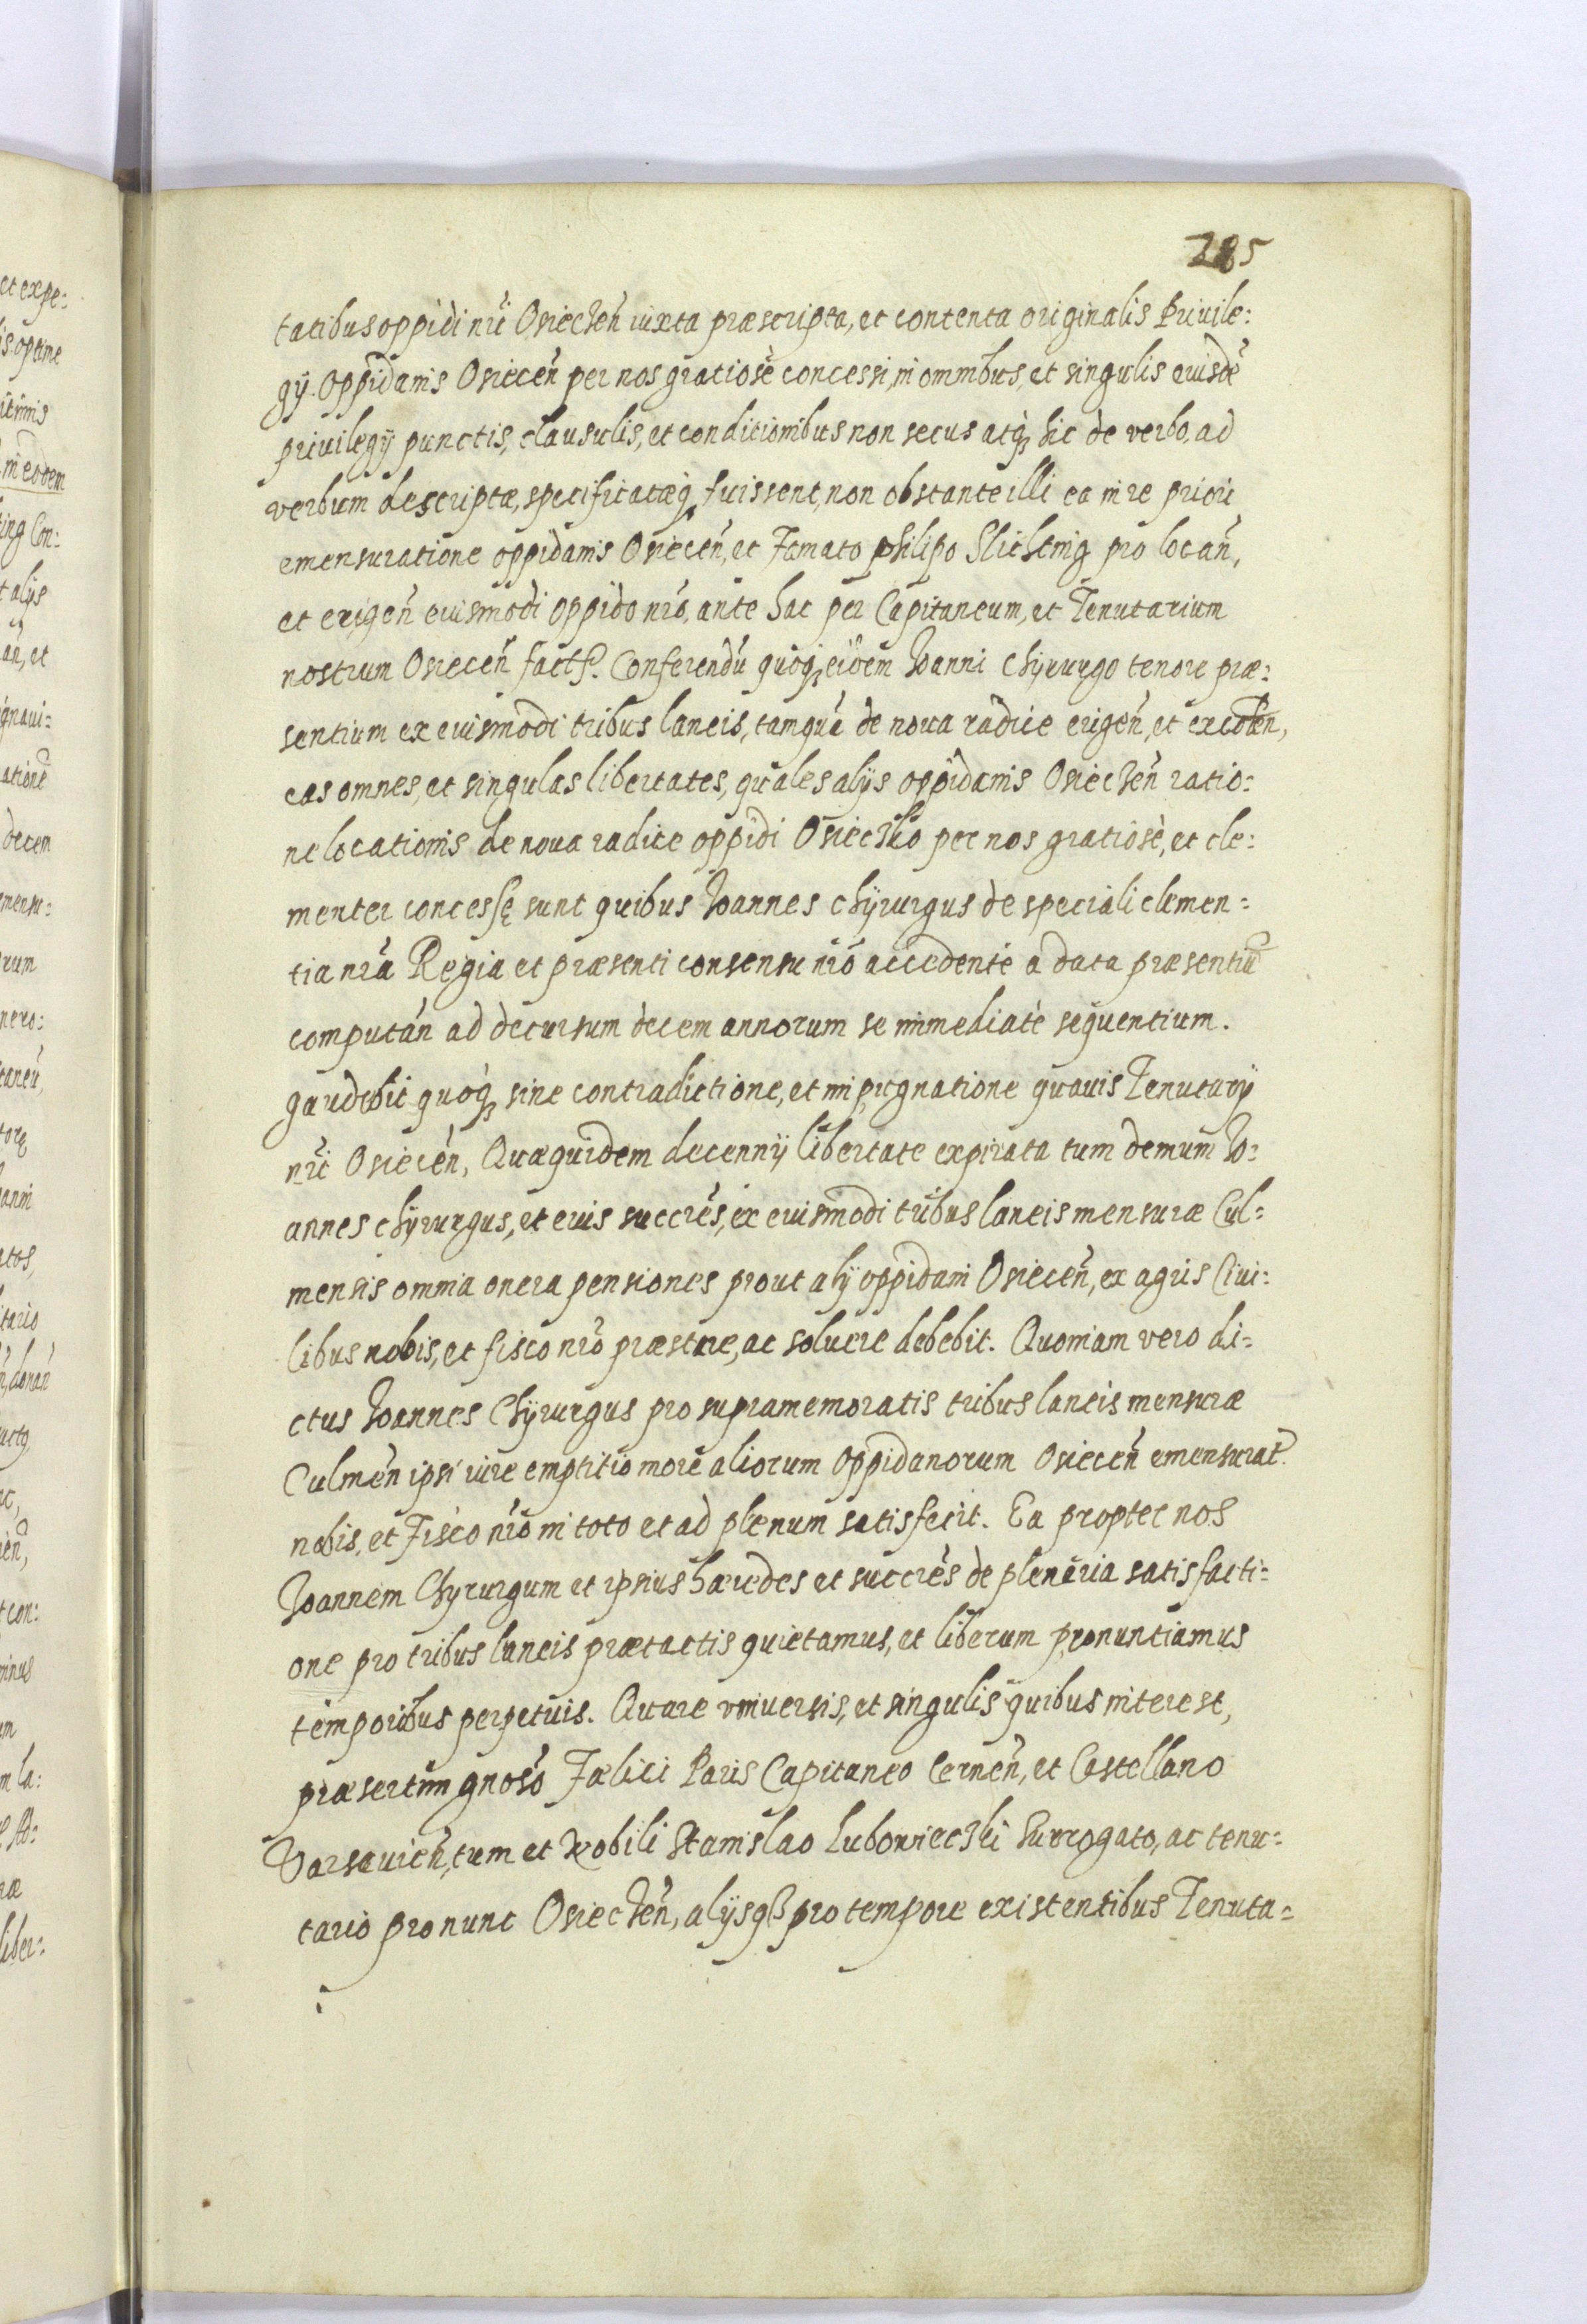 285
tatibus oppidi nri Osiecken iuxta præscripta, et contenta originalis Priuile:
gÿ. Oppidanis Osiecen per nos gratiosè concessi, in omnibus, et singulis eiusdē
priuilegÿ punctis, clausulis, et conditionibus non secus atq₃ hic de verbo, ad
verbum descriptæ, specificatæq₃ fuissent, non obstante illi ea in re priori
emensuratione oppidanis Osiecen, et Famato philipo Slichting pro locan,
et erigen eiusmodi oppido nro, ante hac per Capitaneum, et Tenutarium
nostrum Osiecen fact. Conferendū quoq₃ eidem Ioanni Chÿrurgo tenore præ:
sentium ex eiusmodi tribus laneis, tamquā de noua radice erigen, et excolen,
eas omnes, et singulas libertates, quales alÿs oppidanis Osiecken ratio:
ne locationis de noua radice oppidi Osiecko per nos gratiosè, et cle:
menter concessę sunt quibus Ioannes chÿrurgus de speciali clemen:
tia nra Regia et præsenti consensu nro accedente a data præsentiū
computan ad decursum decem annorum se immediatè sequentium.
gaudebit quoq₃ sine contradictione, et impugnatione quauis Tenutarÿ
nri Osiecen, Quæquidem decennÿ libertate expirata tum demum Io:
annes chÿrurgus, et eius succres, ex eiusmodi tribus laneis mensuræ Cul:
mensis omnia onera pensiones prout alÿ oppidani Osiecen, ex agris Ciui:
libus nobis, et fisco nro præstare, ac soluere debebit. Quoniam vero di:
ctus Ioannes Chÿrurgus pro supramemoratis tribus laneis mensuræ
Culmen ipsi iure emptitio more aliorum Oppidanorum Osiecen emensurat
nobis, et Fisco nro in toto et ad plenum satisfecit. Ea propter nos
Ioannem Chyrurgum et ipsius hæredes et succres de plenaria satisfacti:
one pro tribus laneis prætactis quietamus, et liberum pronuntiamus
temporibus perpetuis. Quare vniuersis, et singulis quibus interest,
præsertim gnoso Fælici Paris Capitaneo Cernen, et Castellano
Varsauien, tum et Nobili Stanislao Lubowiecki Surrogato, ac tenu:
tario pro nunc Osiecken, alÿsq₃ pro tempore existentibus Tenuta: